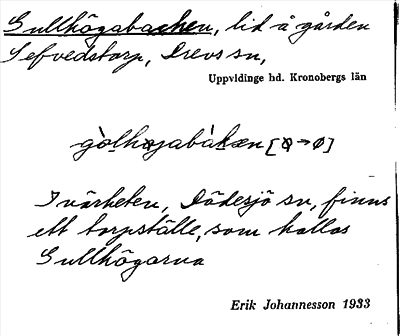 Gullhögabacken, lid å gården
Sefvedstorp, Drevs sn,
Uppvidinge hd. Kronobergs län
gòlhøjabàkæn
I närheten, Dädesjö sn, finns
ett torpställe, som kallas
Gullhögarna
Erik Johannesson 1933